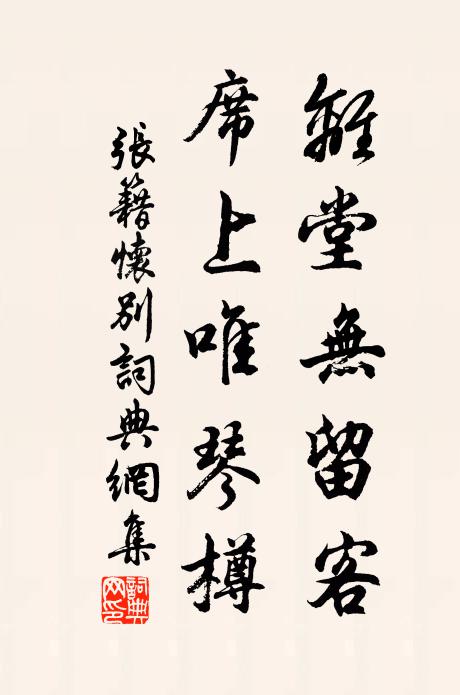 離堂無留客
席上唯琴樽
張籍懷別詞典網集
詞典網印